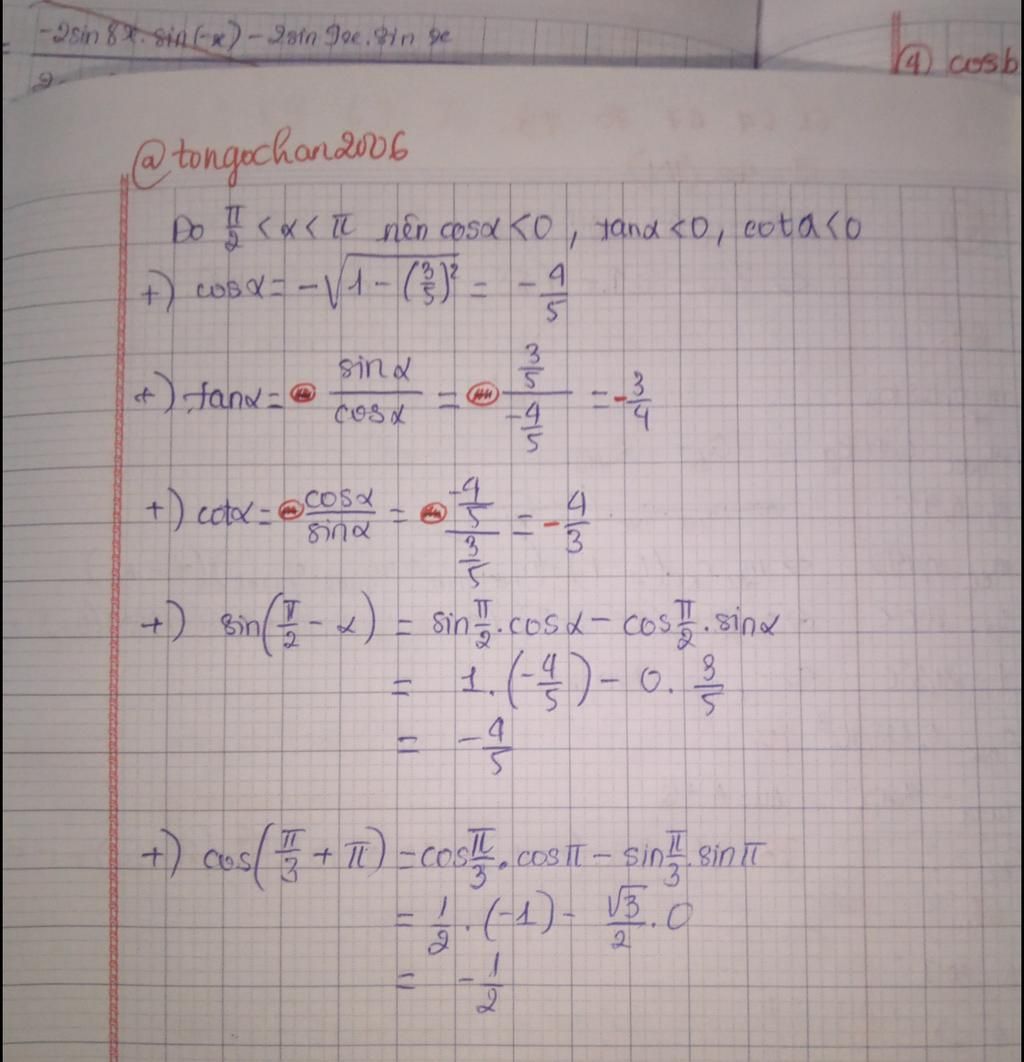 = -2sin8x.sin(-x) - 2sin9x.sin x / 2
④ cosb
@tongochan2006
Do π/2 < α < π nên cosα < 0, tanα < 0, cotα < 0
+) cosα = -√(1 - (3/5)²) = -4/5
+) tanα = sinα/cosα = (3/5)/(-4/5) = -3/4
+) cotα = cosα/sinα = (-4/5)/(3/5) = -4/3
+) sin(π/2 - α) = sin π/2 . cosα - cos π/2 . sinα
= 1.(-4/5) - 0. 3/5
= -4/5
+) cos(π/3 + π) = cos π/3 . cosπ - sin π/3 . sinπ
= 1/2 . (-1) - √3/2 . 0
= -1/2